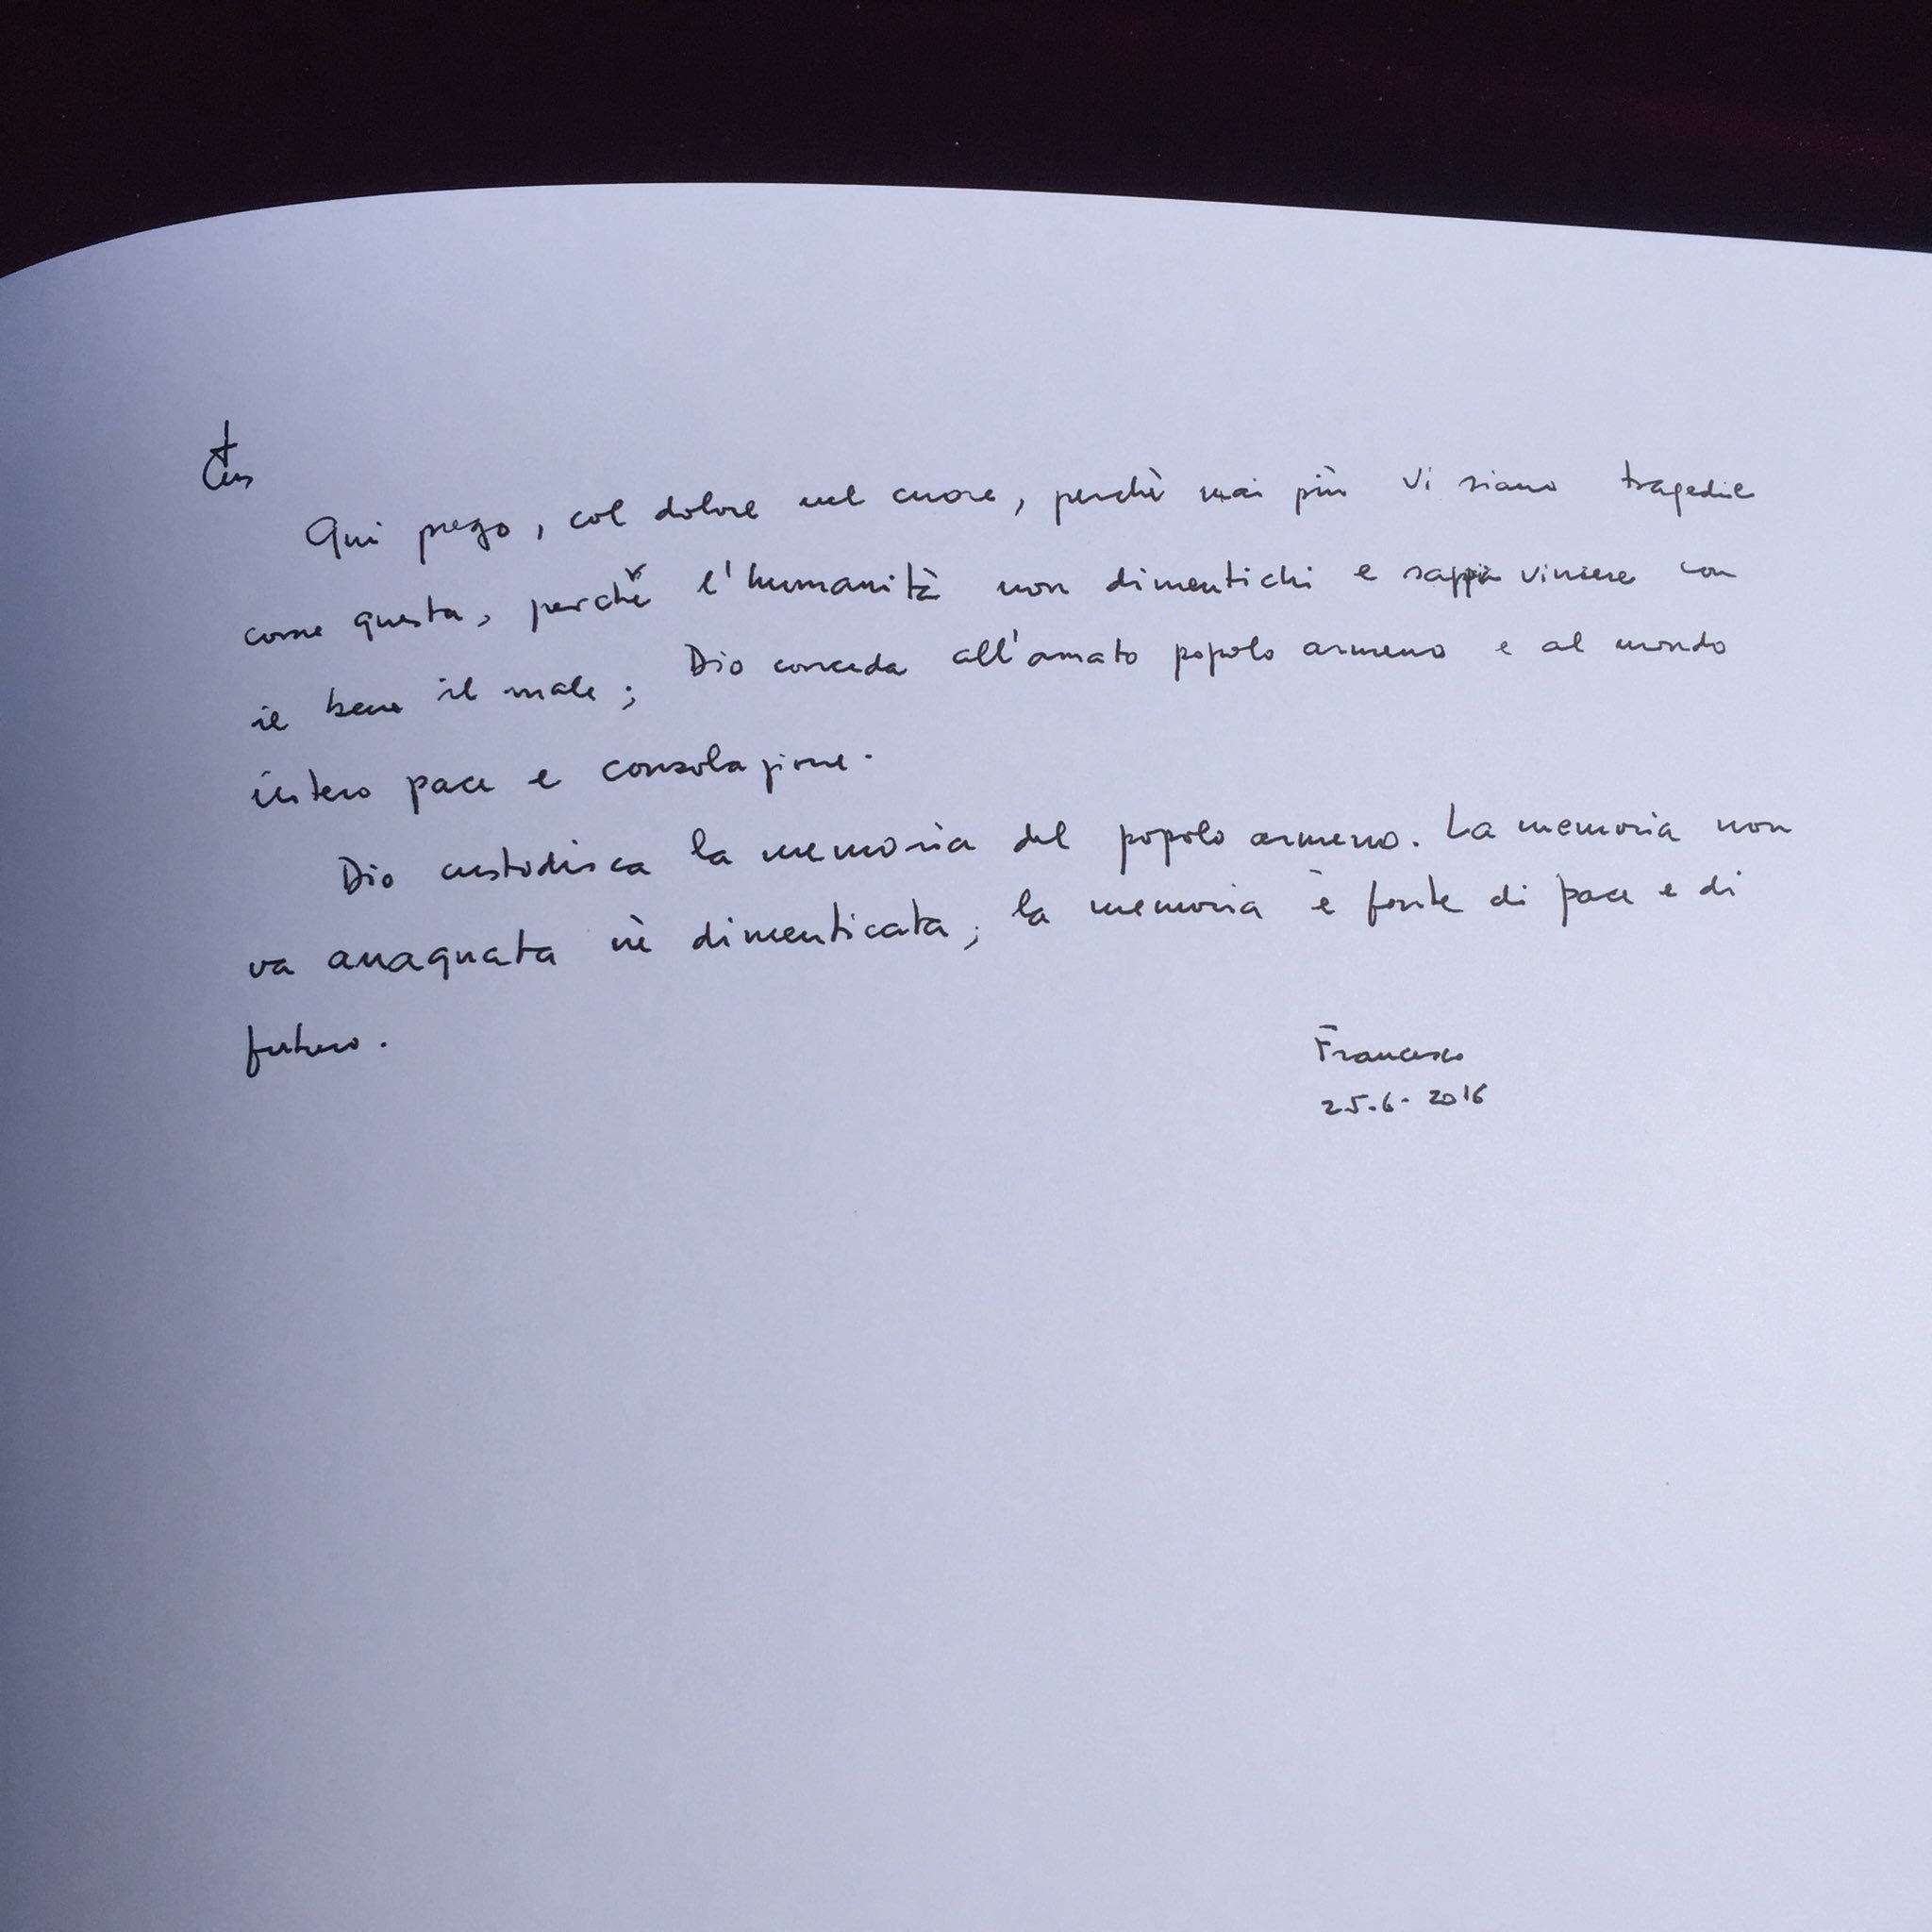 Qui prego, col dolore nel cuore, perchè mai più vi siano tragedie
come questa, perchè l'humanità non dimentichi e sappia vincere con
il bene il male; Dio conceda all'amato popolo armeno e al mondo
intero pace e consolazione.
Dio custodisca la memoria del popolo armeno. La memoria non
va anaquata nè dimenticata; la memoria è fonte di pace e di
futuro.
Francesco
25.6.2016